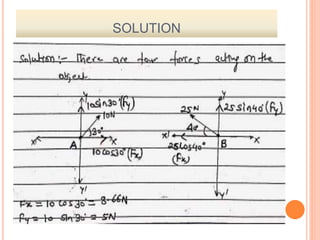 SOLUTION
Solution:- There are four forces acting on the
object.
Y
10sin30°(Fy)
10N
30°
X'
A
X
10cos30°(Fx)
Y'
Y
25sin40°(Fy)
25N
40°
X'
B
X
25cos40°
(Fx)
Y'
Fx = 10 cos 30° = 8.66N
Fy = 10 sin 30° = 5N